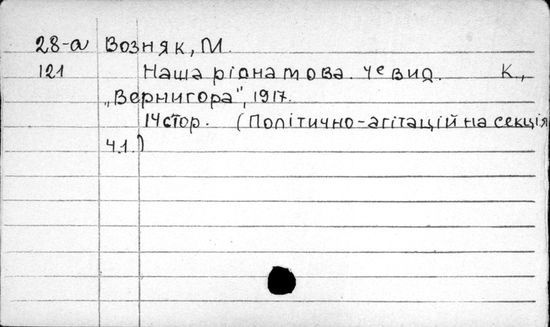 28-а Возняк, М.
121 Наша рідна мова. 4е вид. К.,
„Вернигора", 1917.
14 стор. (Політично-агітаційна секція
Ч.1.)